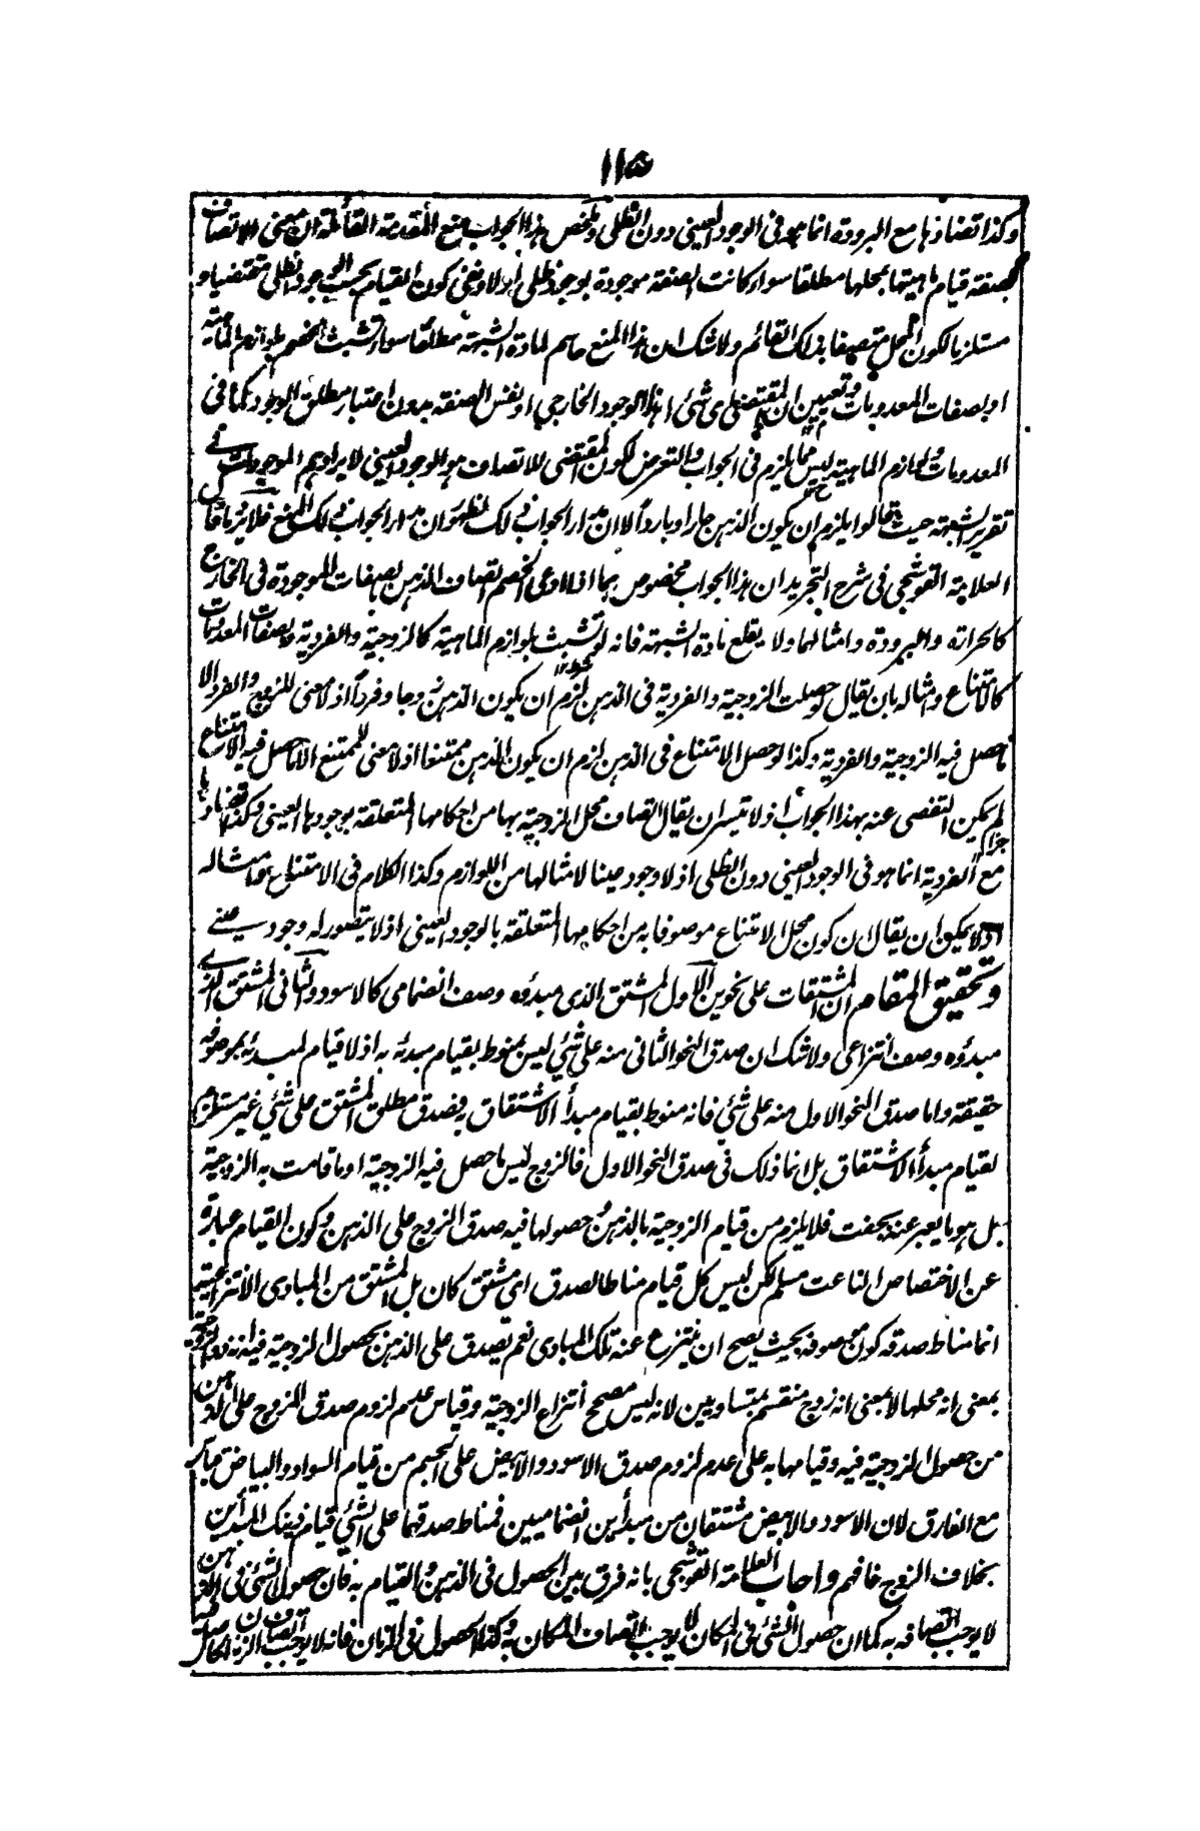 ١١٥
وكذا تضادها مع البرودة انما هو فى الوجود العينى دون الظلى وملخص هذا الجواب منع المقدمة القائلة ان معنى الاتصاف
بصفة قيام ماهيتها بمحلها مطلقا سواء كانت الصفة موجودة بوجود ظلى او لا ونفى كون القيام بحسب الوجود الظلى مقتضيا و
مستلزما لكون المحل متصفا بذلك القائم ولا شك ان هذا المنع حاسم لمادة الشبهة مطلقا سواء تشبث الخصم بلوازم الماهية
او بصفات المعدومات وتعيين ان المقتضى اى شئ اهذا الوجود الخارجى او نفس الصفة بدون اعتبار مطلق الوجود كما فى
المعدومات ولوازم الماهية ليس مما يلزم فى الجواب والتعرض لكون المقتضى للاتصاف هو الوجود العينى لايرادهم الموجودات فى
تقرير الشبهة حيث قالوا يلزم ان يكون الذهن حارا وباردا لا ان مدار الجواب ذلك فظهر ان مدار الجواب ذلك المنع فلا يرد ما قال
العلامة القوشجى فى شرح التجريد ان هذا الجواب مخصوص بما اذا ادعى الخصم اتصاف الذهن بصفات الموجودة فى الخارج
كالحرارة والبرودة وامثالهما ولا يقلع مادة الشبهة فانه لو تشبث بلوازم الماهية كالزوجية والفردية وبصفات المعدومات
كالامتناع وامثاله بان يقال لو حصلت الزوجية والفردية فى الذهن لزم ان يكون الذهن زوجا وفردا اذ لا معنى للزوج والفرد الا
ما حصل فيه الزوجية والفردية وكذا لو حصل الامتناع فى الذهن لزم ان يكون الذهن ممتنعا اذ لا معنى للممتنع الا ما حصل فيه الامتناع
لم يمكن التفصى عنه بهذا الجواب اذ لا تيسر ان يقال اتصاف محل الزوجية بها من احكامها المتعلقة بوجودها العينى وكذا تضادها
مع الفردية انما هو فى الوجود العينى دون الظلى اذ لا وجود عينا لامثالها من اللوازم وكذا الكلام فى الامتناع وامثاله
اذ لا يمكن ان يقال ان كون محل الامتناع موصوفا به من احكامها المتعلقة بالوجود العينى اذ لا يتصور له وجود عينى
وتحقيق المقام ان المشتقات على نحوين الاول المشتق الذى مبدؤه وصف انضمامى كالاسود والثانى المشتق الذى
مبدؤه وصف انتزاعى ولا شك ان صدق النحو الثانى منه على شئ ليس بمنوط بقيام مبدئه به اذ لا قيام لمبدئه بموصوفه
حقيقة واما صدق النحو الاول منه على شئ فانه منوط بقيام مبدأ الاشتقاق به فصدق مطلق المشتق على شئ غير مستلزم
لقيام مبدأ الاشتقاق بل انما ذلك فى صدق النحو الاول فالزوج ليس ما حصل فيه الزوجية او ما قامت به الزوجية
بل هو ما يعبر عنه بجفت فلا يلزم من قيام الزوجية بالذهن وحصولها فيه صدق الزوج على الذهن وكون القيام عبارة
عن الاختصاص الناعت مسلم لكن ليس كل قيام مناطا لصدق اى مشتق كان بل المشتق من المبادى الانتزاعية
انما مناط صدقه كون موصوفه بحيث يصح ان ينتزع عنه تلك المبادى نعم يصدق على الذهن بحصول الزوجية فيه انه ذو الزوجية
بمعنى انه محلها لا بمعنى انه زوج منقسم بمتساويين لانه ليس مصحح انتزاع الزوجية وقياس عدم لزوم صدق الزوج على الذهن
من حصول الزوجية فيه وقيامها به على عدم لزوم صدق الاسود والابيض على الجسم من قيام السواد والبياض قياس
مع الفارق لان الاسود والابيض مشتقان من مبدأين انضماميين فمناط صدقهما على الشئ قيام ذينك المبدأين
بخلاف الزوج فافهم واجاب العلامة القوشجى بانه فرق بين الحصول فى الذهن والقيام به فان حصول الشئ فى الذهن
لا يوجب اتصافه به كما ان حصول الشئ فى المكان لا يوجب اتصاف المكان به وكذا الحصول فى الزمان فانه لا يوجب اتصاف الزمان